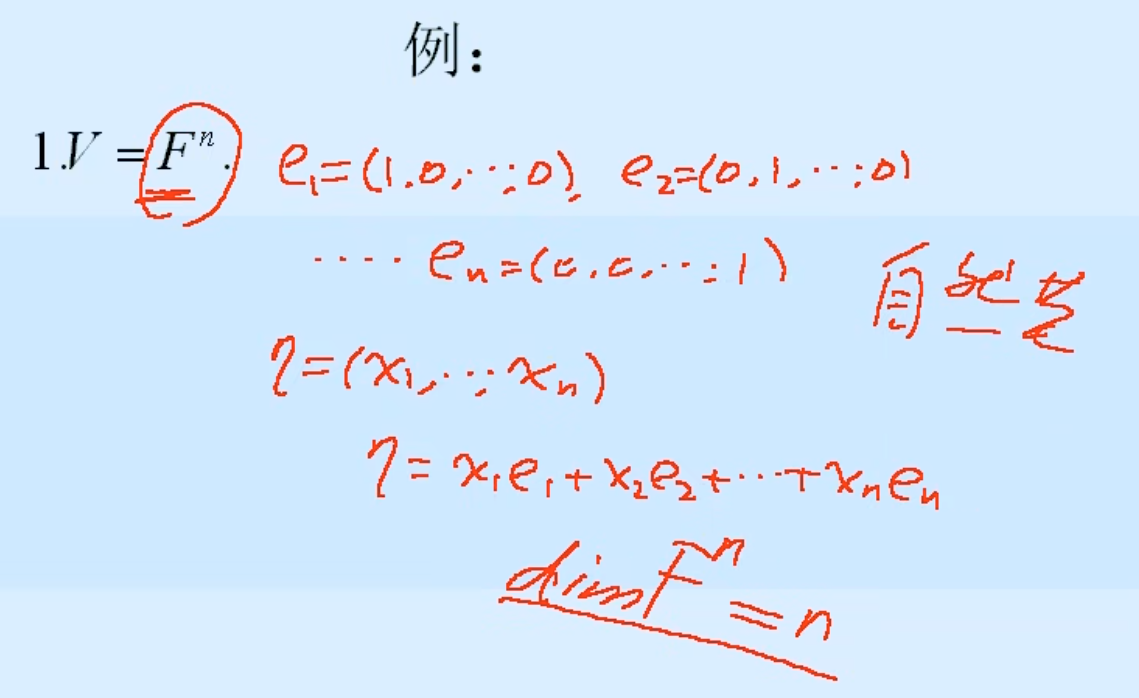 例：
1.V = Fⁿ. e₁=(1,0,⋯,0), e₂=(0,1,⋯,0)
⋯⋯ eₙ=(0,0,⋯,1)
自然基
η=(x₁,⋯,xₙ)
η= x₁e₁+x₂e₂+⋯+xₙeₙ
dimFⁿ=n